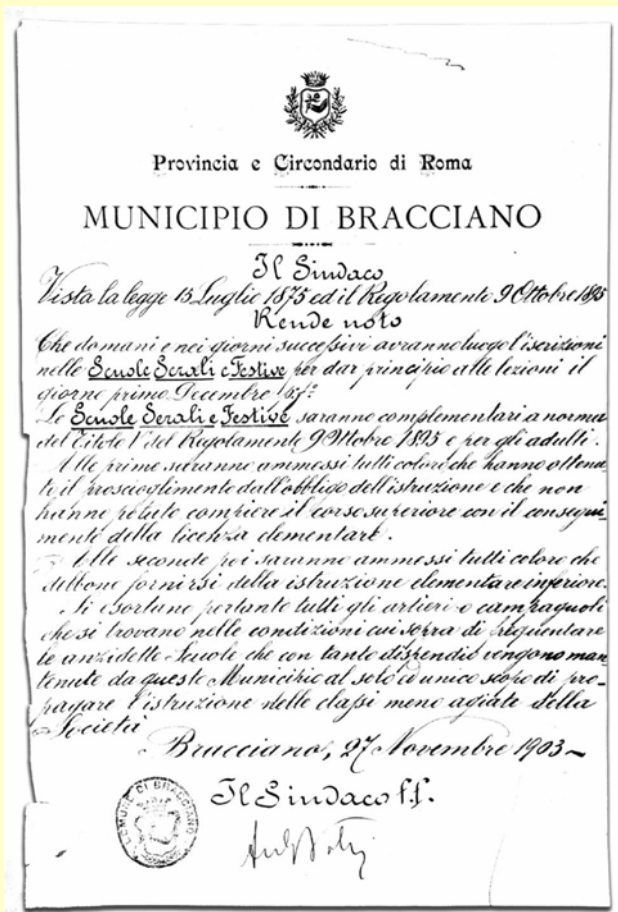 Provincia e Circondario di Roma
MUNICIPIO DI BRACCIANO
Il Sindaco
Vista la legge 15 Luglio 1875 ed il Regolamento 9 Ottobre 1895
Rende noto
Che domani e nei giorni successivi avranno luogo l'iscrizioni
nelle Scuole Serali e Festive per dar principio alle lezioni il
giorno primo Decembre
Le Scuole Serali e Festive saranno complementari a norma
del Titolo V del Regolamento 9 Ottobre 1895 e per gli adulti.
Alle prime saranno ammessi tutti coloro che hanno ottenu-
to il proscioglimento dall'obbligo dell'istruzione e che non
hanno potuto compiere il corso superiore con il consegui-
mento della licenza elementare.
Alle seconde poi saranno ammessi tutti coloro che
debbono fornirsi della istruzione elementare inferiore.
Si esortano pertanto tutti gli artieri o campagnoli
che si trovano nelle condizioni cui sopra di frequentare
le anzidette Scuole che con tanto dispendio vengono man
tenute da questo Municipio al solo ed unico scopo di pro-
pagare l'istruzione nelle classi meno agiate della
Società
Bracciano, 27 Novembre 1903
Il Sindaco ff.
COMUNE DI BRACCIANO